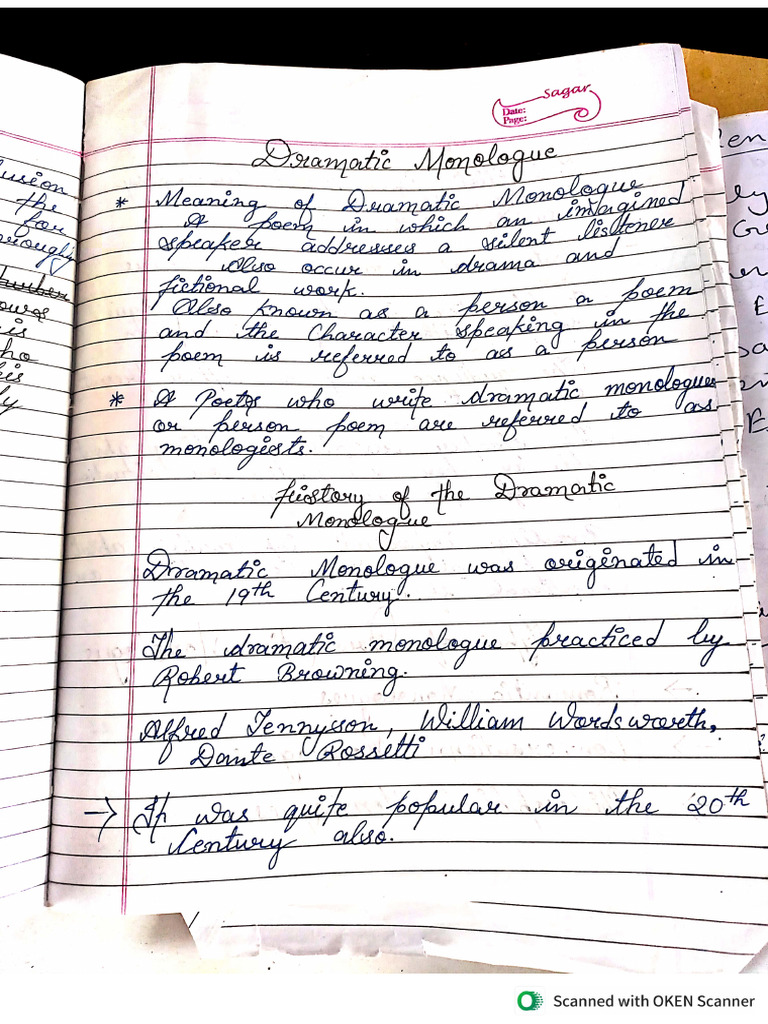 sagar
Date:
Page:
Dramatic Monologue
* Meaning of Dramatic Monologue
A poem in which an imagined
speaker addresses a silent listener
Also occur in drama and
fictional work.
Also known as a person a poem
and the Character speaking in the
poem is referred to as a person
* A Poets who write dramatic monologues
or person poem are referred to as
monologists.
History of the Dramatic
Monologue
Dramatic Monologue was originated in
the 19th Century.
The dramatic monologue practiced by
Robert Browning.
Alfred Tennyson, William Wordsworth,
Dante Rossetti
→ It was quite popular in the 20th
Century also.
the
for
is
Scanned with OKEN Scanner